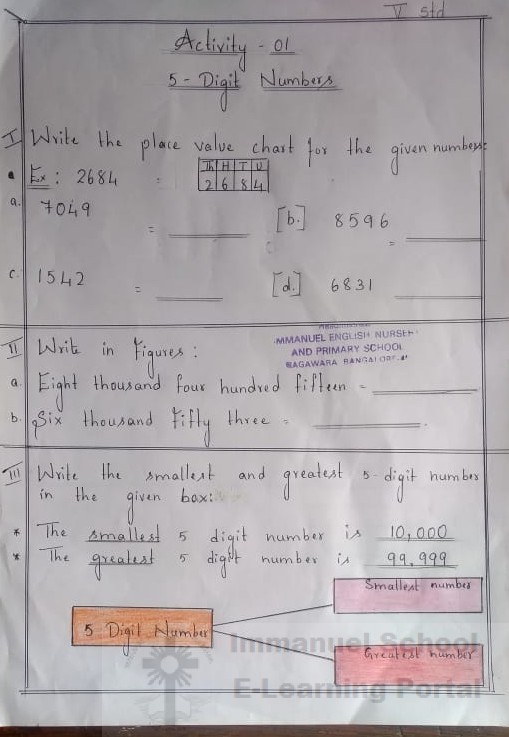 V Std
Activity - 01
5 - Digit Numbers
I Write the place value chart for the given numbers:
Ex : 2684 = Th H T U
2 6 8 4
a. 7049 = [b.] 8596 =
c. 1542 = [d.] 6831
IMMANUEL ENGLISH NURSERY
AND PRIMARY SCHOOL
NAGAWARA BANGALORE-45
II Write in Figures :
a. Eight thousand four hundred fifteen =
b. Six thousand Fifty three =
III Write the smallest and greatest 5-digit number
in the given box:
* The smallest 5 digit number is 10,000
* The greatest 5 digit number is 99,999
Smallest number
5 Digit Number
Greatest number
Immanuel School
E-Learning Portal